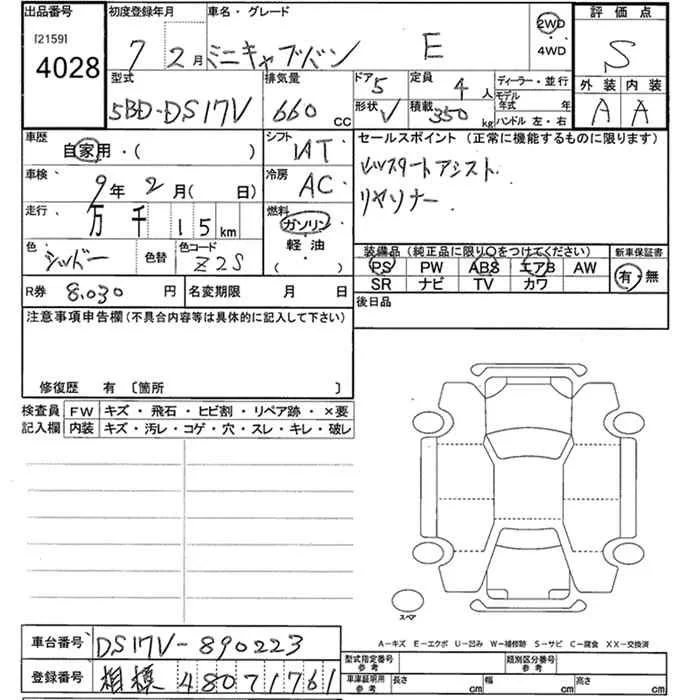 出品番号 初度登録年月 車名・グレード 評価点
[2159]
4028
7 2月 ミニキャブバン E 2WD ・ 4WD S
型式 排気量 ドア 5 定員 4人 ディーラー・並行 外装 内装
5BD-DS17V 660 CC 形状 V 積載 350 kg モデル年式 年 A A
ハンドル 左・右
車歴 自家用・( ) シフト IAT セールスポイント (正常に機能するものに限ります)
車検 9年 2月( 日) 冷房 AC
リヤソナー
走行 万 千 15 km 燃料 ガソリン・軽油・( )
色 色替 色コード Z2S
装備品 (純正品に限り○をつけてください) 新車保証書
PS PW ABS エアB AW 有・無
SR ナビ TV カワ
R券 8,030 円 名変期限 月 日 後日品
注意事項申告欄(不具合内容等は具体的に記入して下さい)
修復歴 有 〔箇所 〕
検査員 FW キズ・飛石・ヒビ割・リペア跡・×要
記入欄 内装 キズ・汚レ・コゲ・穴・スレ・キレ・破レ
スペア
A-キズ E-エクボ U-凹み W-補修跡 S-サビ C-腐食 XX-交換済
車台番号 DS17V-890223
型式指定番号 参考 類別区分番号 参考
登録番号 相模 480 7 1761
車庫証明用 参考 長さ cm 幅 cm 高さ cm